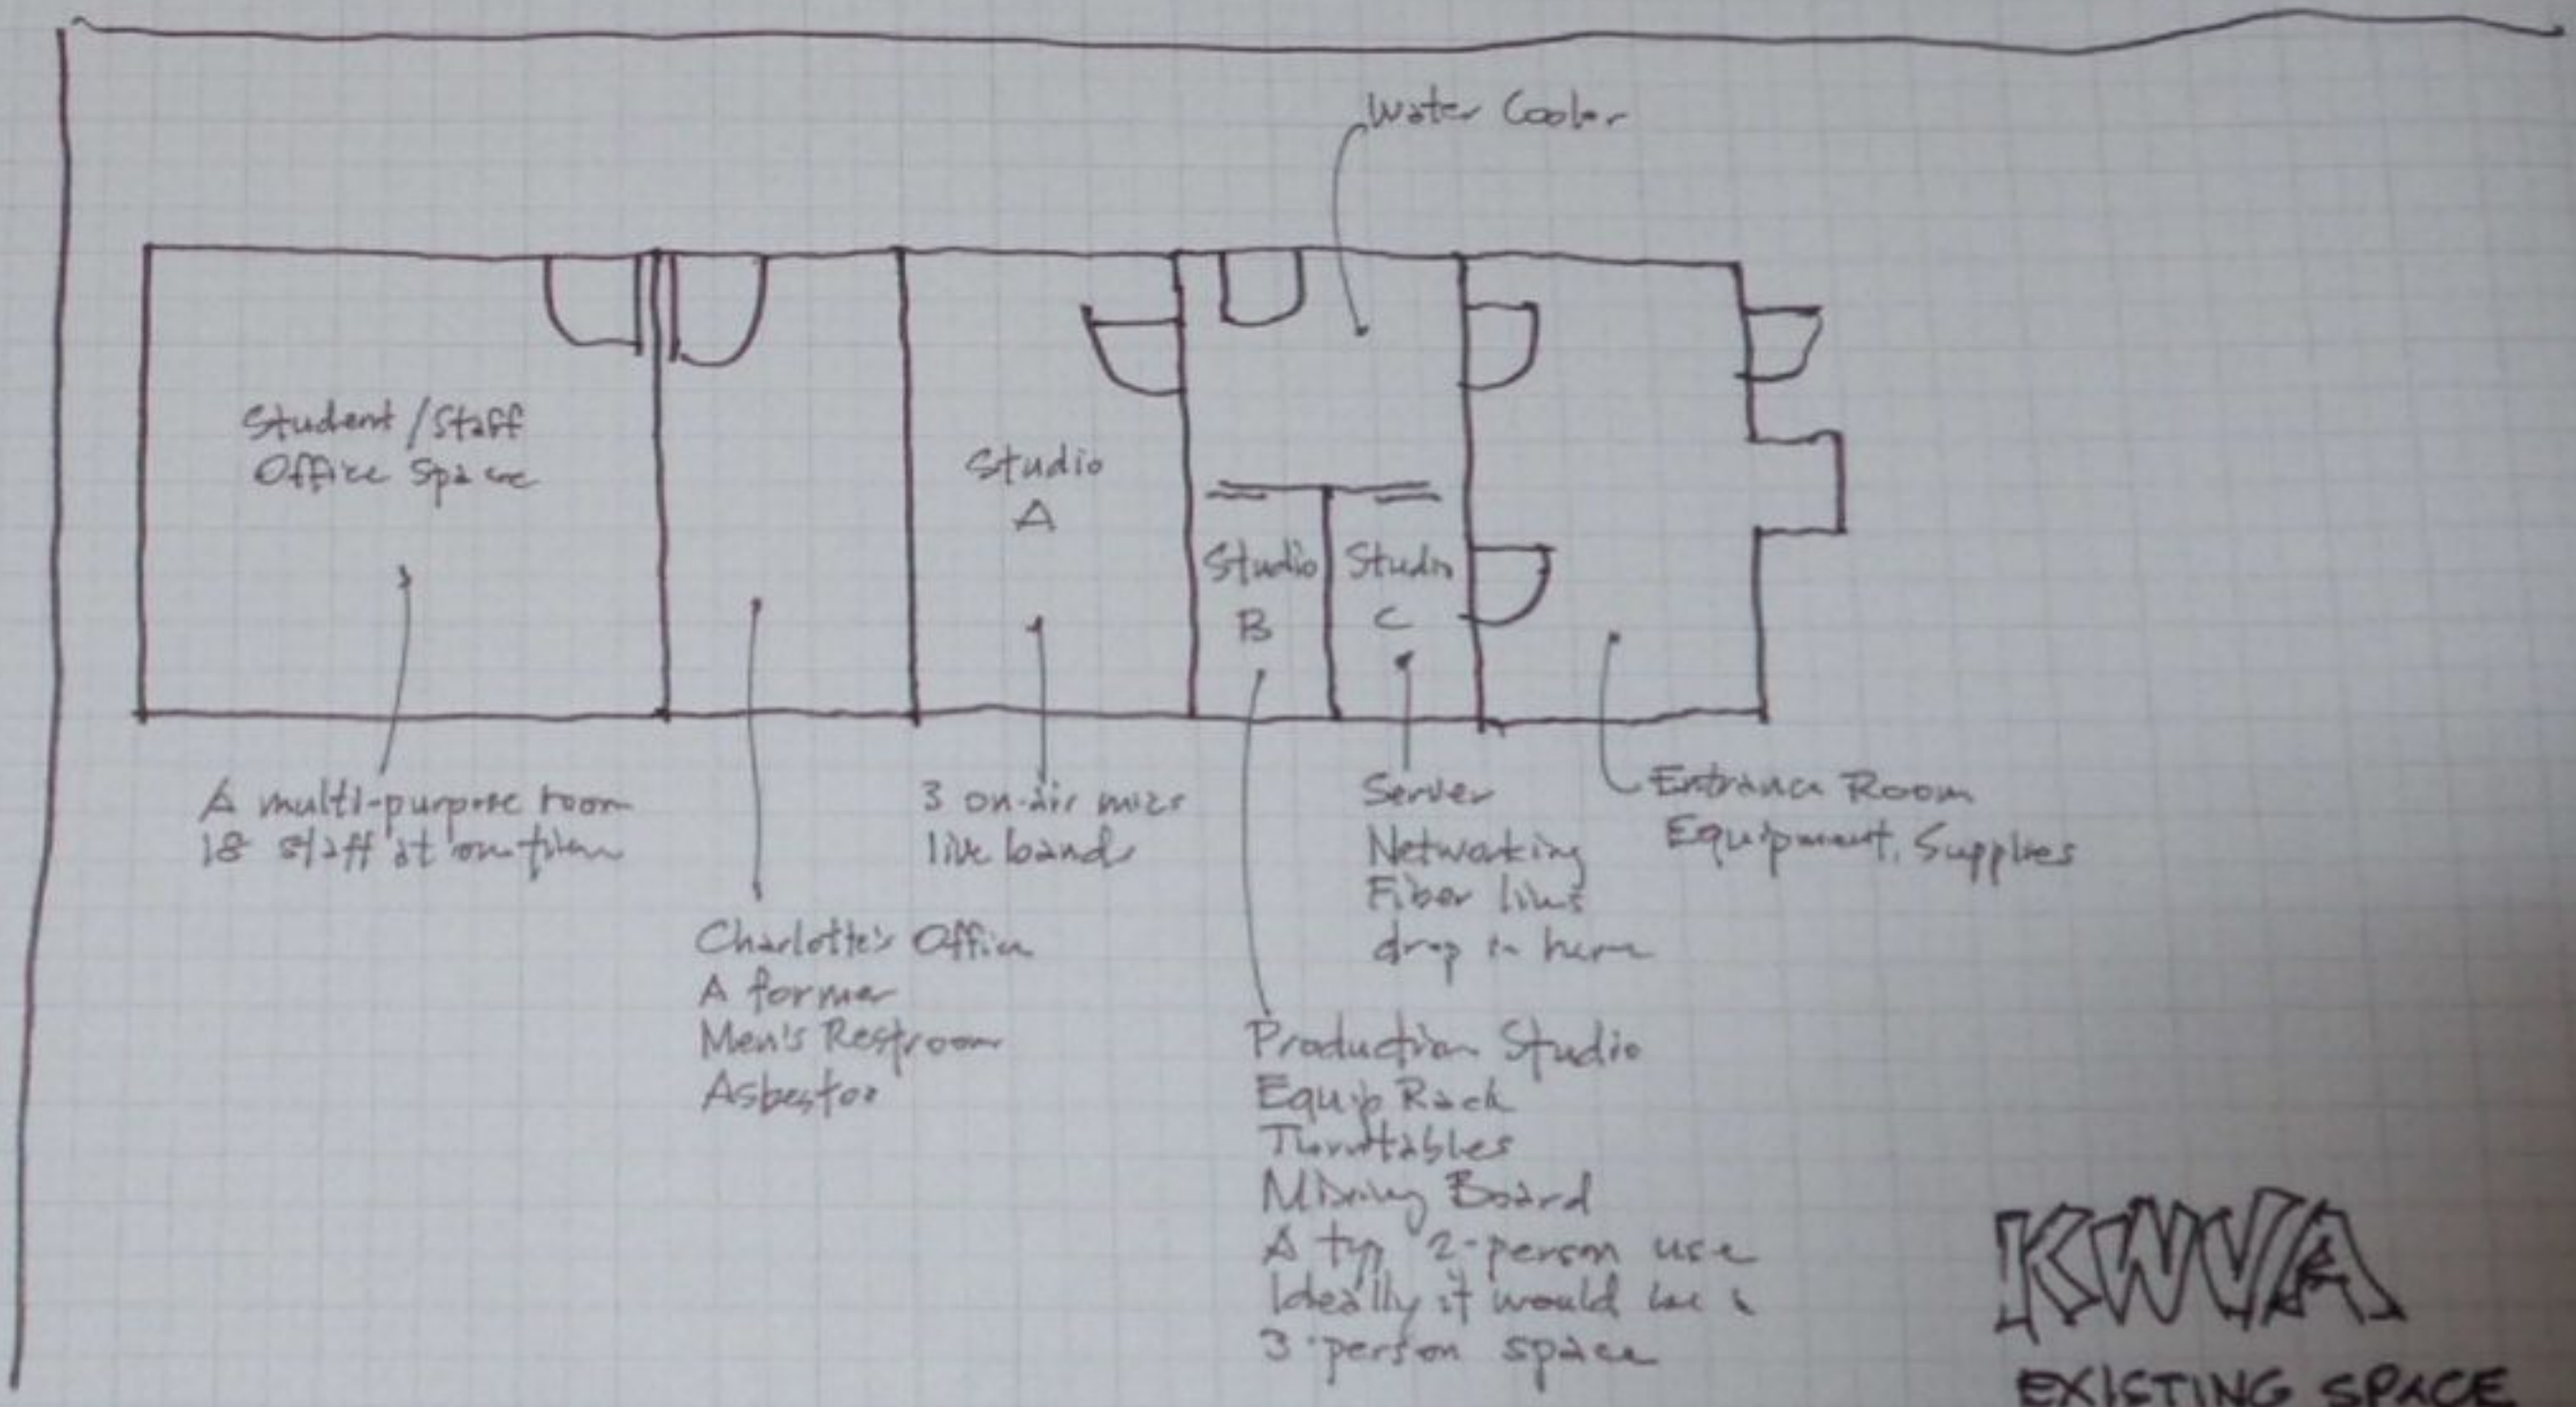 Water Cooler
Student/Staff
Office Space
Studio
A
Studio
B
Studio
C
A multi-purpose room
18 staff at one time
Charlotte's Office
A former
Men's Restroom
Asbestos
3 on-air mics
live bands
Server
Networking
Fiber lines
drop in here
Entrance Room
Equipment, Supplies
Production Studio
Equip Rack
Turntables
Mixing Board
A typ 2-person use
Ideally it would be a
3-person space
KWVA
EXISTING SPACE